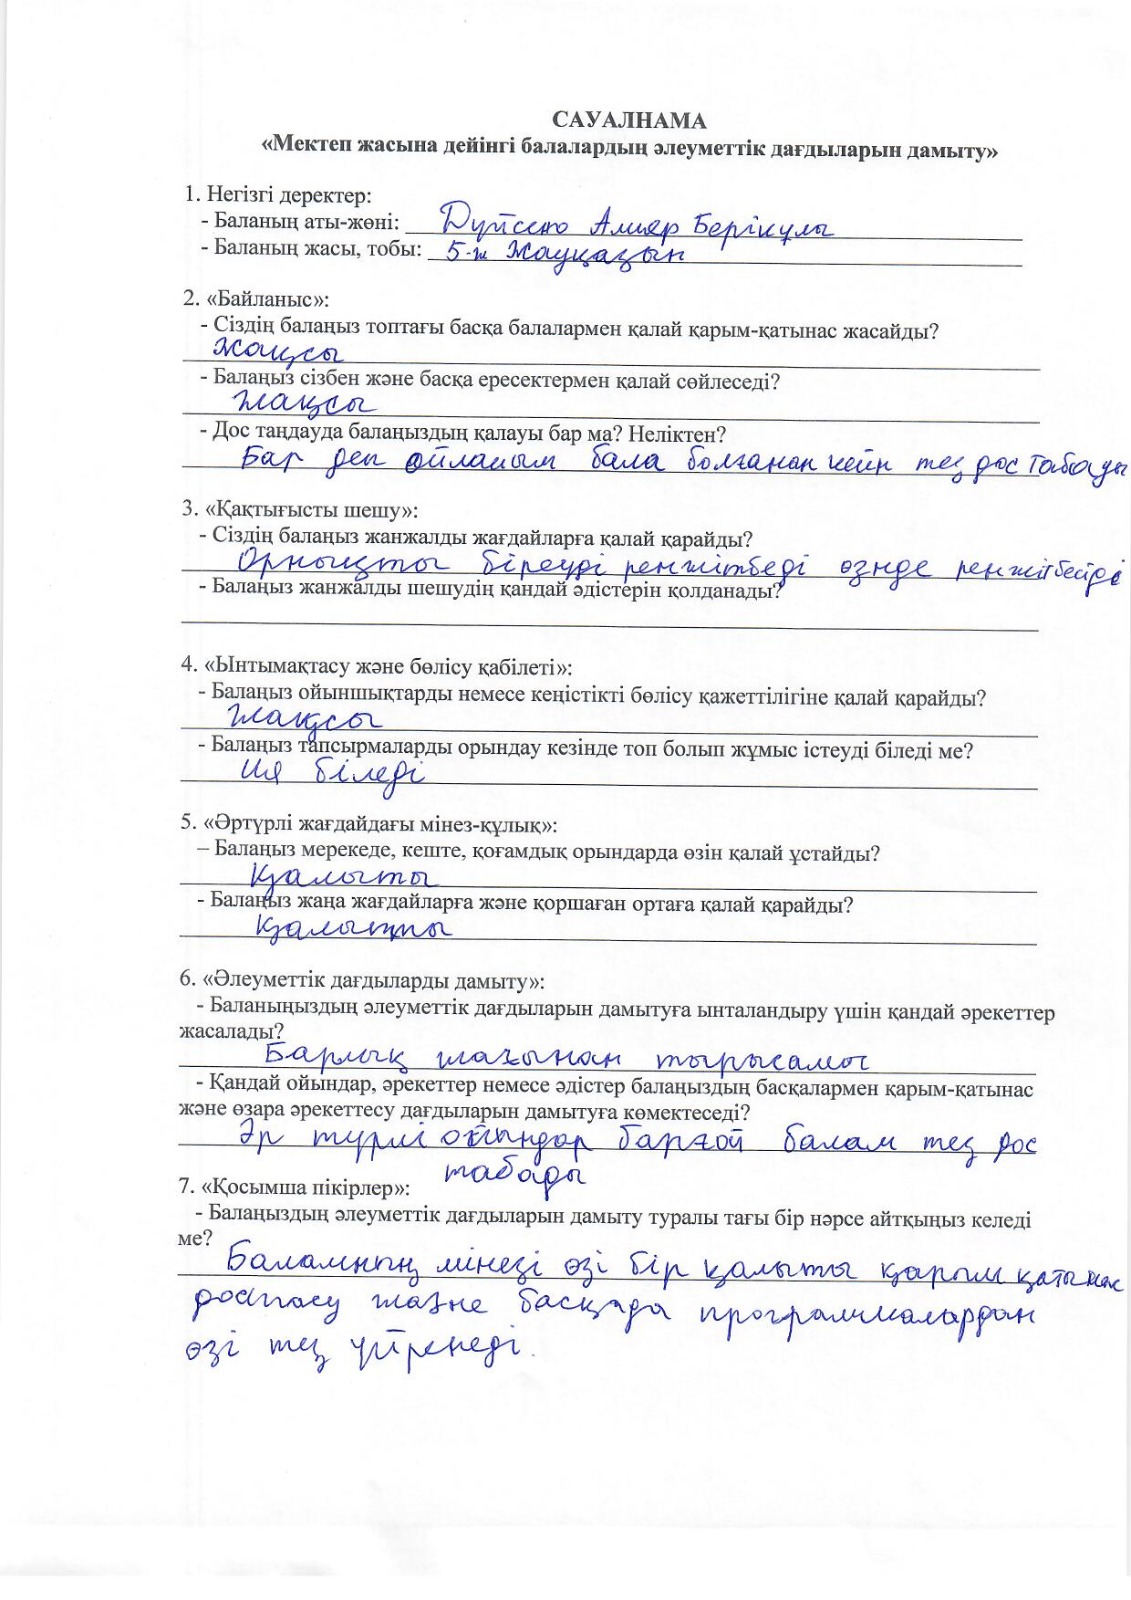 САУАЛНАМА
«Мектеп жасына дейінгі балалардың әлеуметтік дағдыларын дамыту»
1. Негізгі деректер:
- Баланың аты-жөні: Дүйсено Алияр Берікұлы
- Баланың жасы, тобы: 5-ж Жауқазын
2. «Байланыс»:
- Сіздің балаңыз топтағы басқа балалармен қалай қарым-қатынас жасайды?
Жақсы
- Балаңыз сізбен және басқа ересектермен қалай сөйлеседі?
Жақсы
- Дос таңдауда балаңыздың қалауы бар ма? Неліктен?
Бар деп ойлаймын бала болғанан кейн тез дос табады
3. «Қақтығысты шешу»:
- Сіздің балаңыз жанжалды жағдайларға қалай қарайды?
Орнықты біреуді ренжітбеді өзнде ренжітбейді
- Балаңыз жанжалды шешудің қандай әдістерін қолданады?
4. «Ынтымақтасу және бөлісу қабілеті»:
- Балаңыз ойыншықтарды немесе кеңістікті бөлісу қажеттілігіне қалай қарайды?
Жақсы
- Балаңыз тапсырмаларды орындау кезінде топ болып жұмыс істеуді біледі ме?
ия біледі
5. «Әртүрлі жағдайдағы мінез-құлық»:
– Балаңыз мерекеде, кеште, қоғамдық орындарда өзін қалай ұстайды?
Қалыты
- Балаңыз жаңа жағдайларға және қоршаған ортаға қалай қарайды?
Қалыпты
6. «Әлеуметтік дағдыларды дамыту»:
- Баланыңыздың әлеуметтік дағдыларын дамытуға ынталандыру үшін қандай әрекеттер
жасалады?
Барлық жағынан тырысамы
- Қандай ойындар, әрекеттер немесе әдістер балаңыздың басқалармен қарым-қатынас
және өзара әрекеттесу дағдыларын дамытуға көмектеседі?
Әр түрлі ойындар барғой балам тез дос
табады
7. «Қосымша пікірлер»:
- Балаңыздың әлеуметтік дағдыларын дамыту туралы тағы бір нәрсе айтқыңыз келеді
ме?
Баламның мінезі өзі бір қалыты қарым қатынас
достасу және басқада программалардан
өзі тез үйренеді.